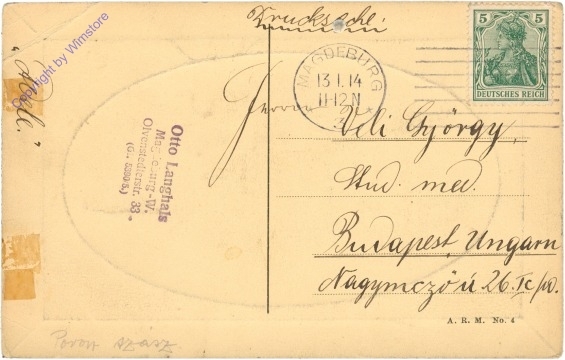 Drucksache
copyright by Wimstore
MAGDEBURG
13.1.14
11-12 N
5 5
DEUTSCHES REICH
Herrn
Veli György,
Stud. med.
Budapest, Ungarn
Nagymező ú 26.
Otto Langhals
Magdeburg-W.
Olvenstedterstr. 33
A. R. M. No. 4